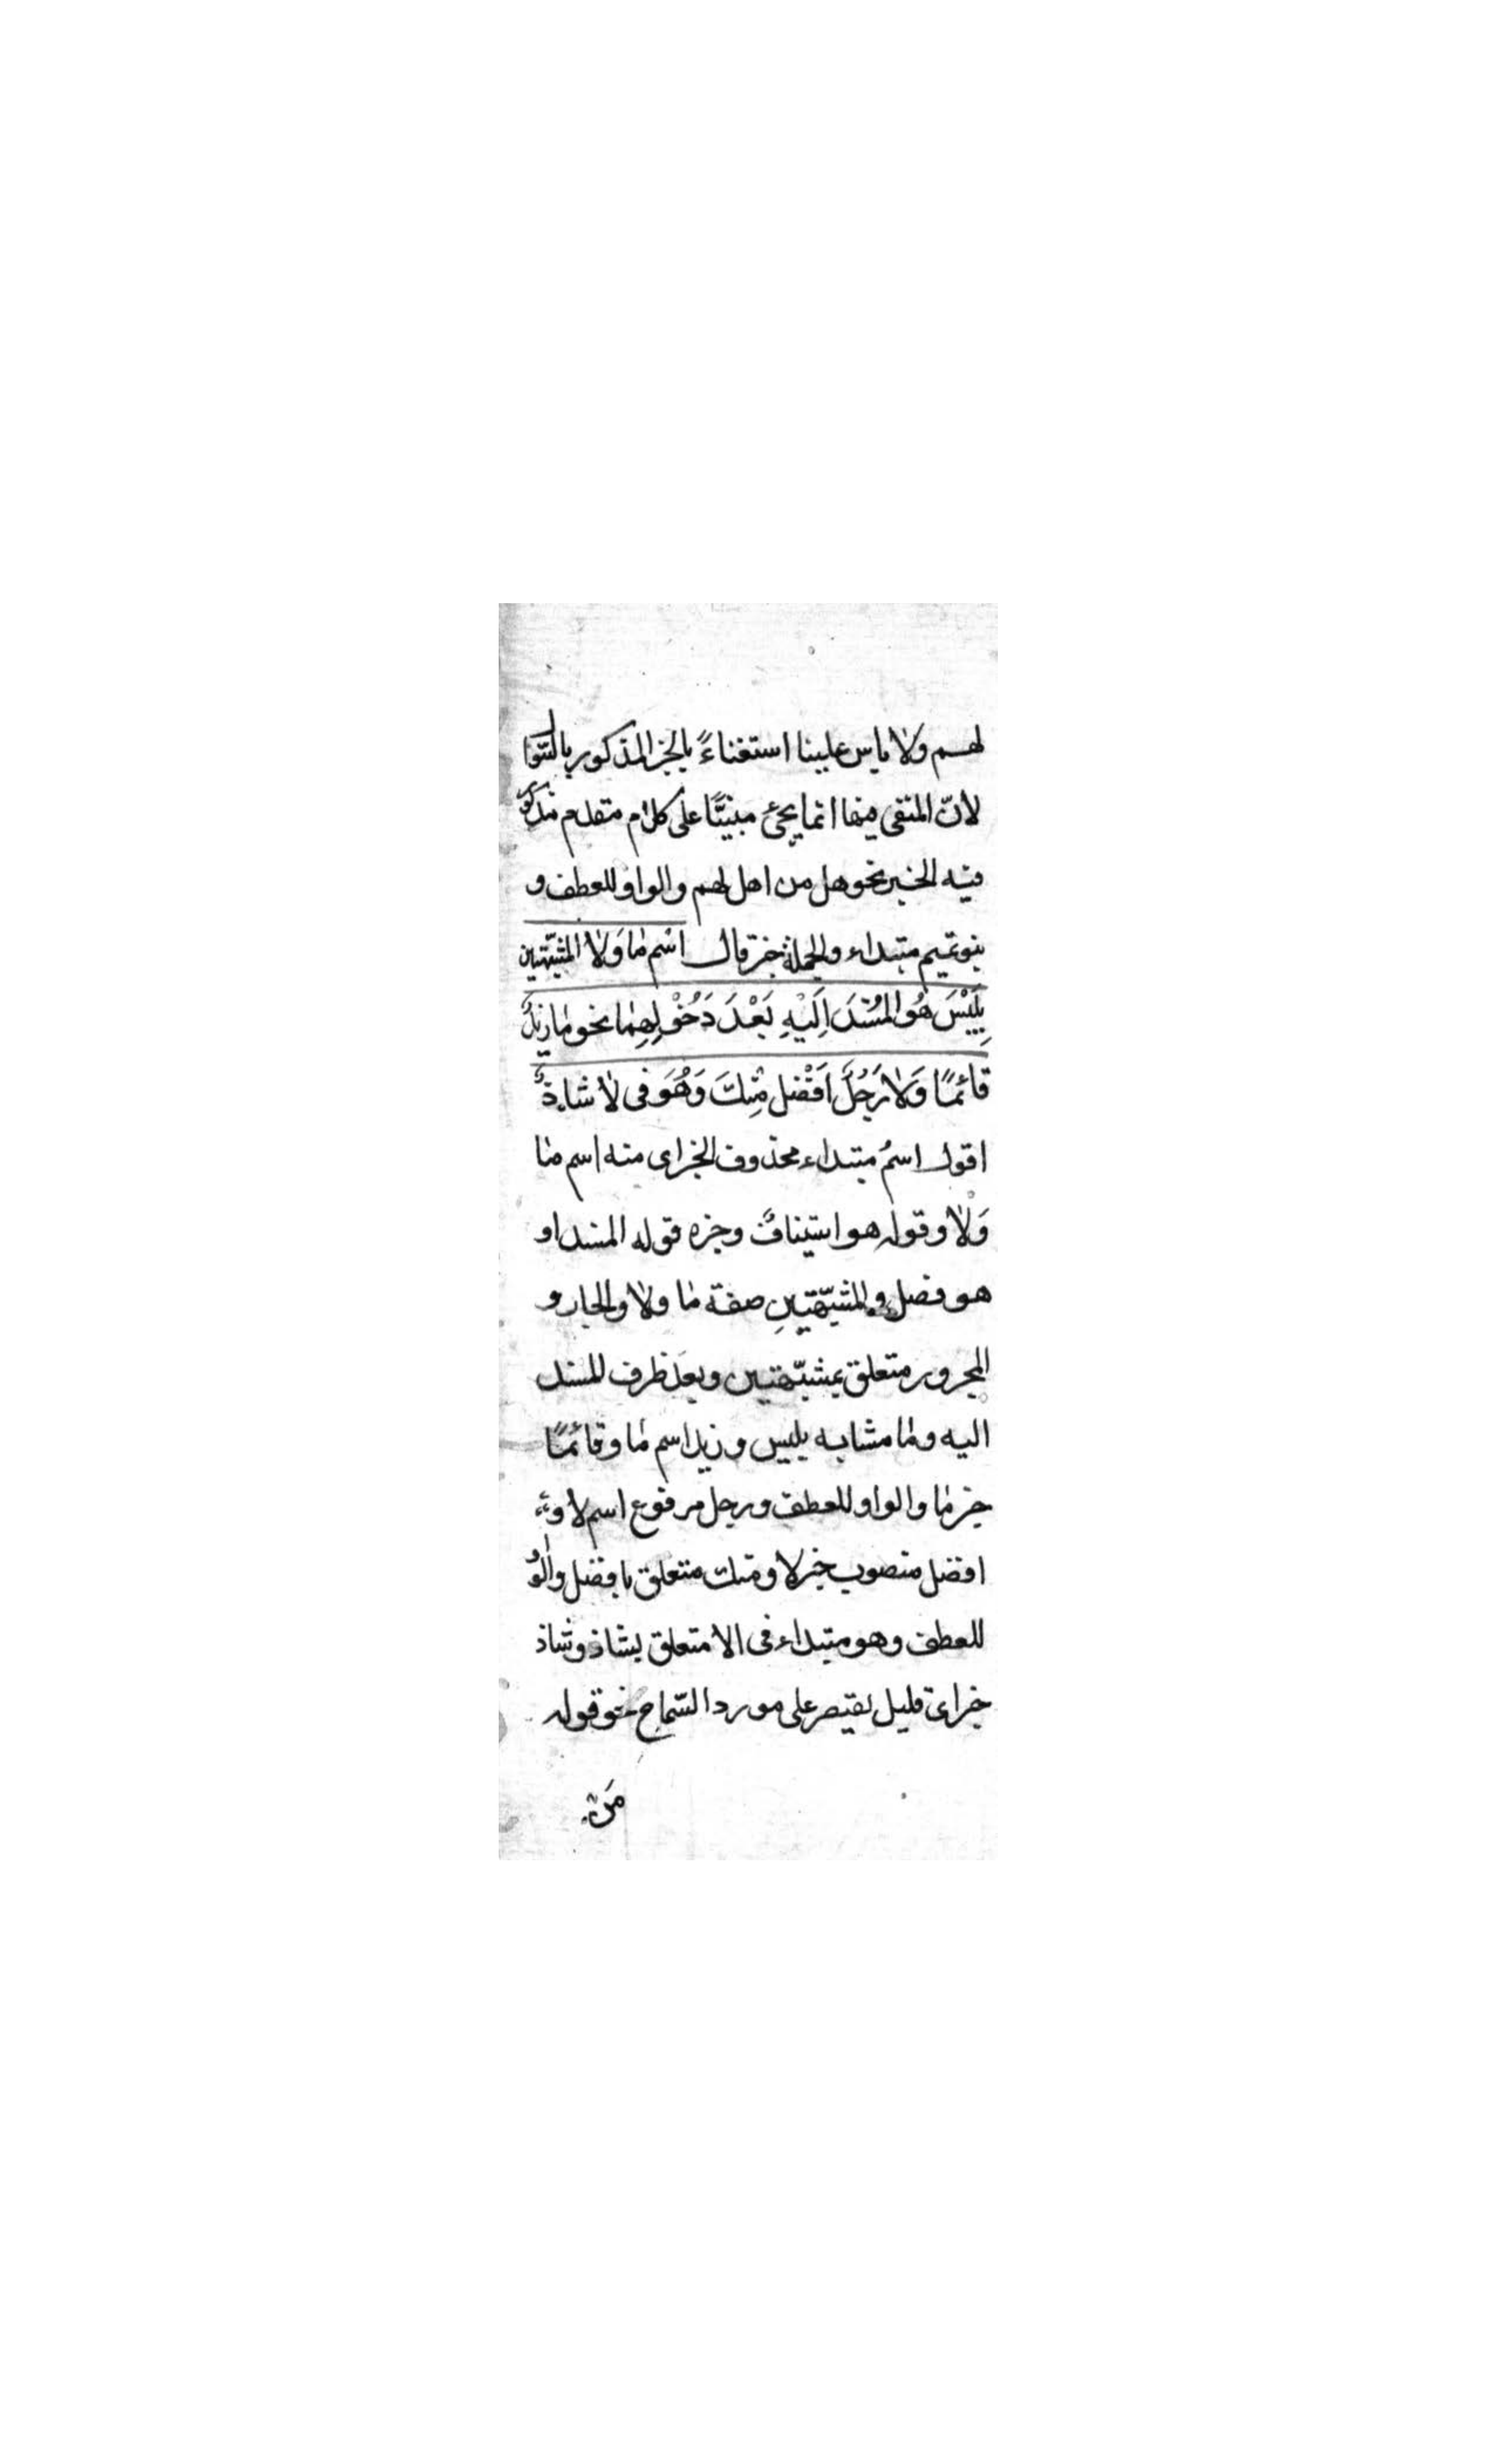 لهم ولا باس علينا استغناءً بالخبر المذكور بالسّوا
لانّ المنفى فيها انما يجئ مبنيًّا على كلام متقدم مذكو
فيه الخبر نحو هل من اهل لهم والواو للعطف و
بنو تميم مبتداء والجملة خبر قال اسْم مٰا وَلٰا المشبّهتين
بِلَيْسَ هُو المُسْنَدَ اِلَيْهِ بَعْدَ دَخُوْلِهِمٰا نحو مٰا زيدٌ
قائمًا وَلٰا رَجُلٌ اَفْضل مِنْكَ وَهُوَ فى لٰا شاذٌّ
اقول اسمُ مبتداء محذوف الخبر اى منه اسم مٰا
وَلٰا وقوله هو استينافٌ وخبره قوله المسند او
هو فصل والمشبّهتينِ صفة مٰا ولا والجار و
المجرور متعلق بمشبّهتين وبعد ظرف للمسند
اليه ومٰا مشابه بليس وزيد اسم مٰا وقائمًا
خبر مٰا والواو للعطف ورجل مرفوع اسم لا و
افضل منصوب خبر لا ومنك متعلق بافضل والوٰو
للعطف وهو مبتداء فى الا متعلق بشاذ وشاذ
خبر اى قليل يقتصر على مورد السّماع نحو قوله
مَن